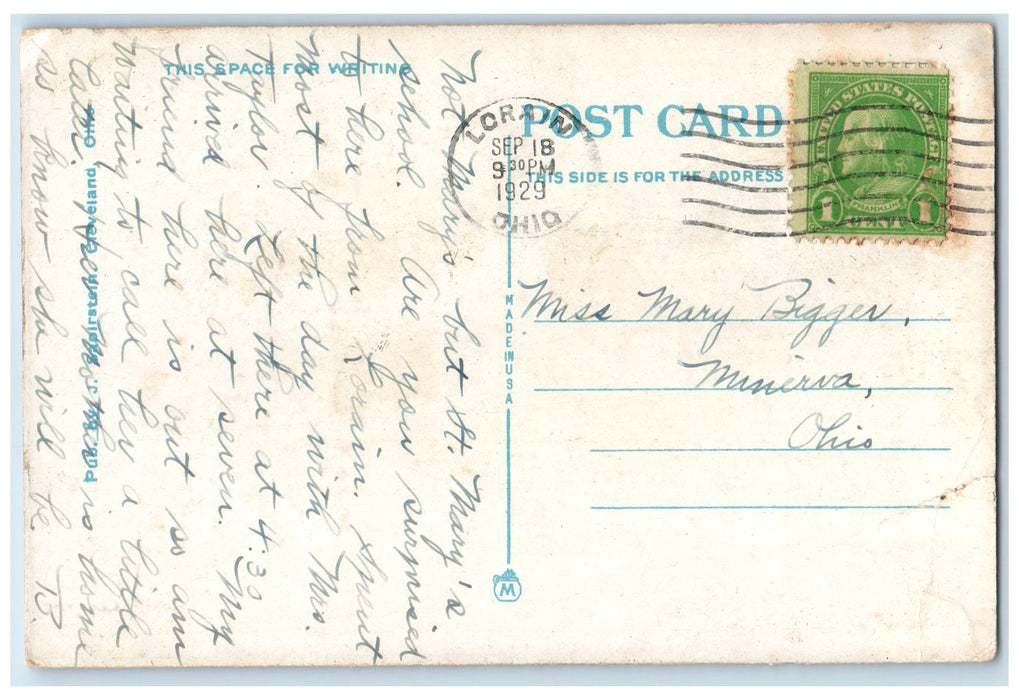 THIS SPACE FOR WRITING
POST CARD
THIS SIDE IS FOR THE ADDRESS
LORAIN
SEP 18
9 30 PM
1929
OHIO
UNITED STATES POSTAGE
FRANKLIN
1 CENT 1
Not Mary's but St. Mary's
school. Are you surprised
to here from Lorain. Spent
most of the day with Mrs.
Taylor. Left there at 4:30
arrivd here at seven. My
friend here is out so am
waiting to call her a little
later. Mother is home
so know she will be B
Miss Mary Bigger,
Minerva,
Ohio
MADE IN USA
M
Pub. By J. Sapirstein, Cleveland, Ohio